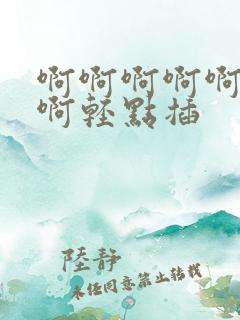 啊啊啊啊啊
啊轻點插
陸静
未经同意禁止转载